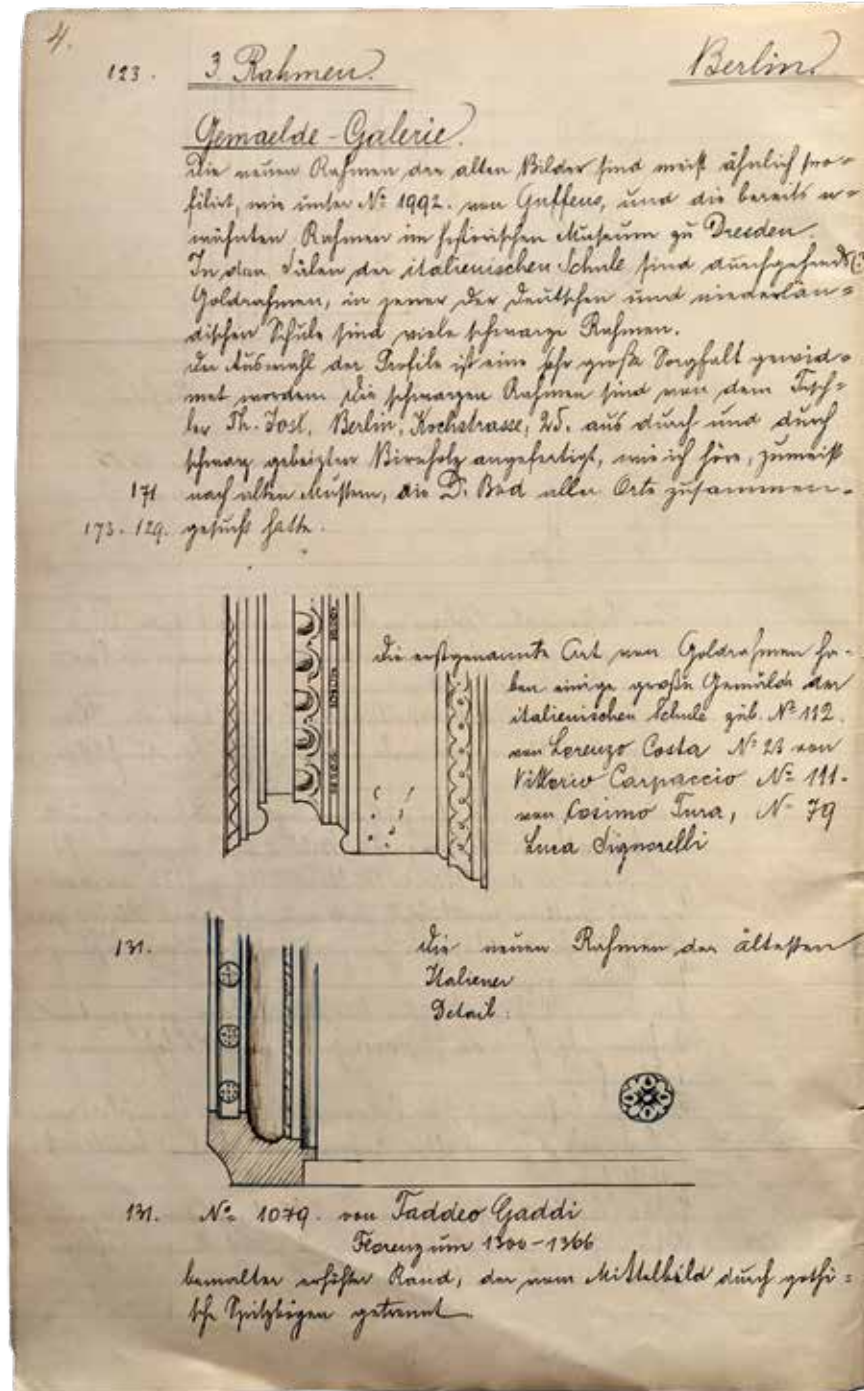 4.
123. 3 Rahmen. Berlin.
Gemaelde-Galerie.
Die neuen Rahmen der alten Bilder sind meist ähnlich pro-
filirt, wie unter No 1992. von Guffens, und die bereits er-
wähnten Rahmen im historischen Museum zu Dresden.
In den Sälen der italienischen Schule sind durchgehends (?)
Goldrahmen, in jener der Deutschen und niederlän-
dischen Schule sind viele schwarze Rahmen.
Der Auswahl der Profile ist eine sehr große Sorgfalt gewid-
met worden. Die schwarzen Rahmen sind von dem Tisch-
ler Th. Jost, Berlin, Kochstrasse, 25. aus durch und durch
schwarz gebeizten Birnholz angefertigt, wie ich höre, zumeist
171 nach alten Mustern, die D. Bod aller Orte zusammen-
173. 129. gesucht hatte.
Die erstgenannte Art von Goldrahmen ha-
ben einige große Gemälde der
italienischen Schule zB. No 112.
von Lorenzo Costa No 23 von
Vittorio Carpaccio No 111.
von Cosimo Tura, No 79
Luca Signorelli
131. Die neuen Rahmen der ältesten
Italiener
Detail:
131. No 1079. von Taddeo Gaddi
Florenz um 1300-1366
bemalter erhöhter Rand, der vom Mittelbild durch gothi-
sche Spitzbögen getrennt